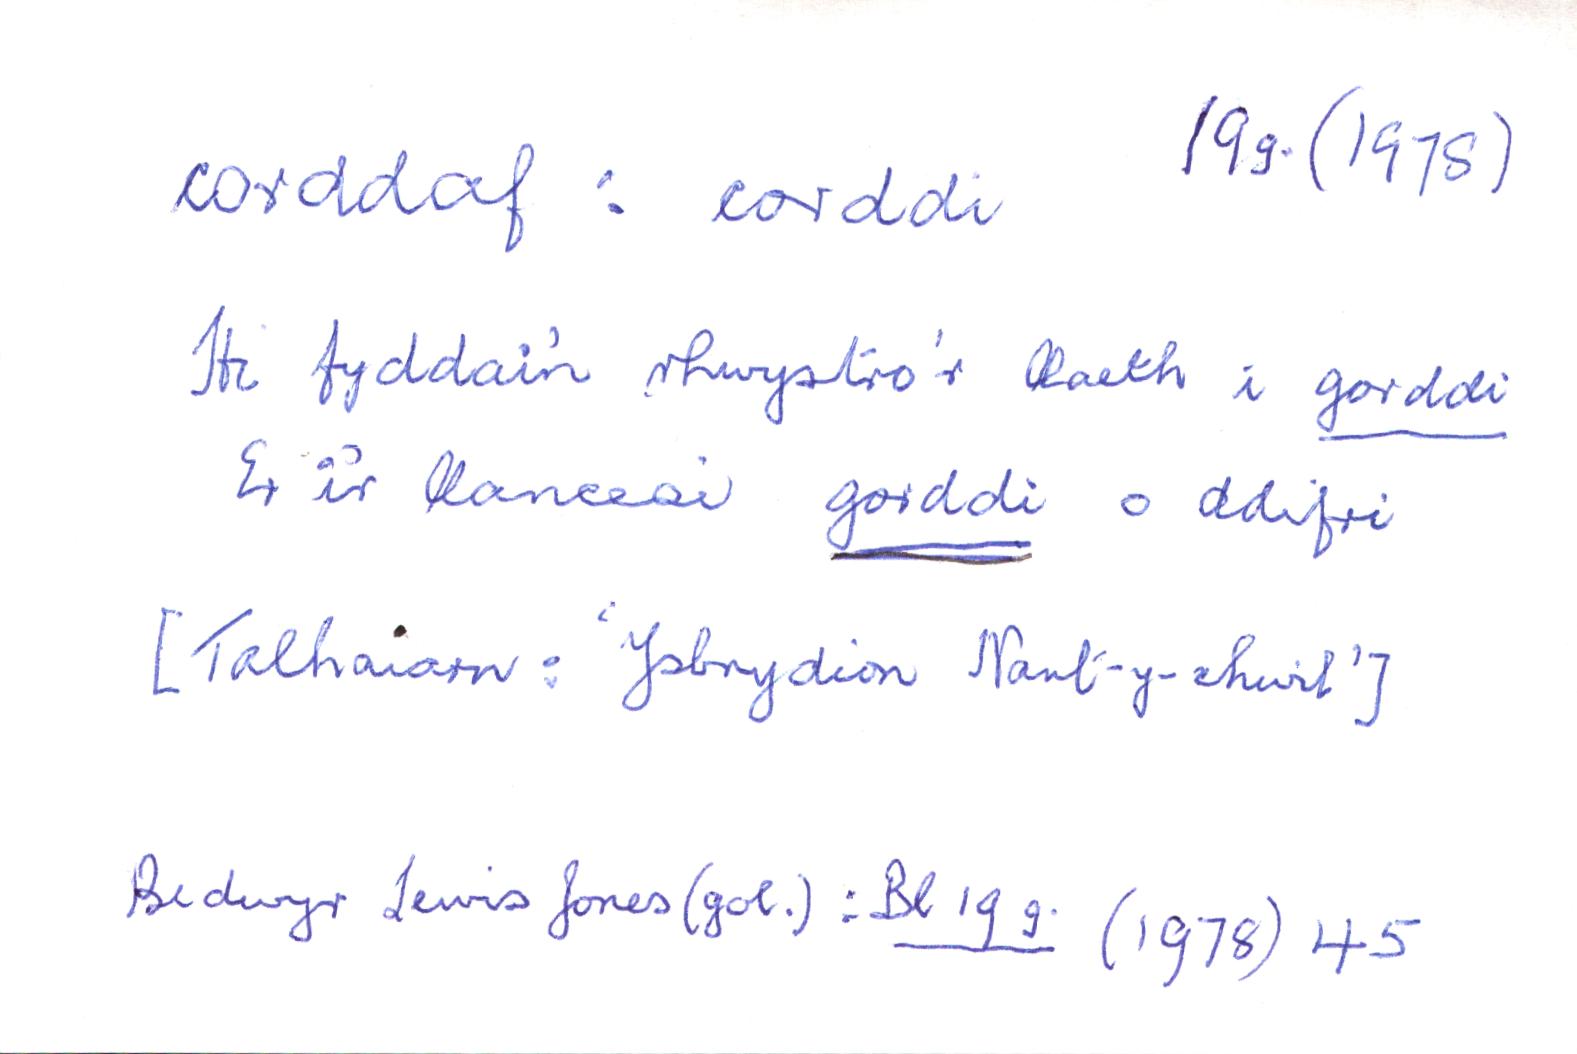 19g. (1978)
corddaf : corddi
Hi fyddai'n rhwystro'r llaeth i gorddi
Er i'r llanciau gorddi o ddifri
[Talhaiarn : 'Ysbrydion Nant-y-chwil']
Bedwyr Lewis Jones (gol.) : Bl 19 g. (1978) 45